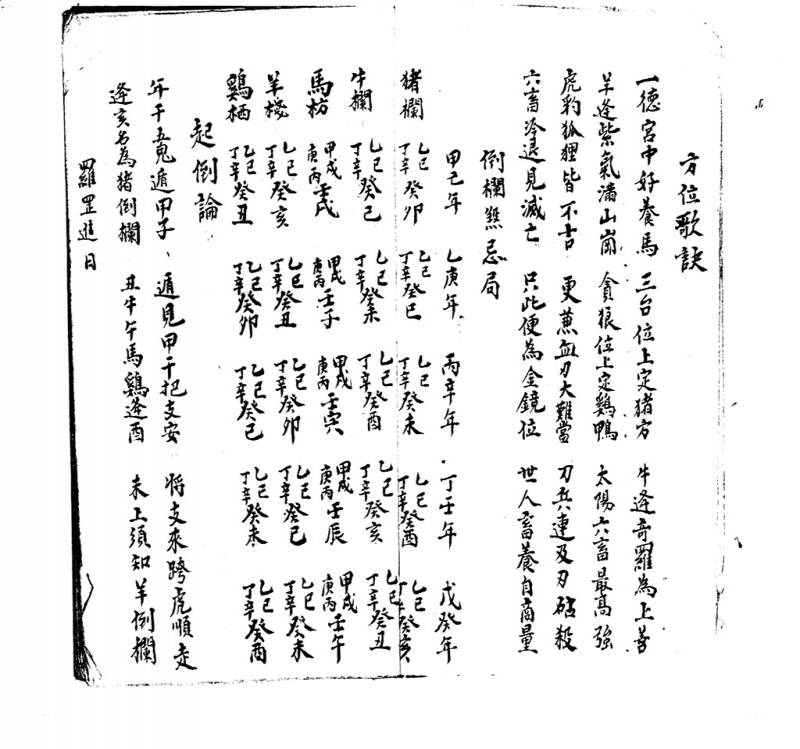 方位歌訣
一德宮中好養馬　三台位上定猪方　牛逢奇羅為上善
羊逢紫氣滿山崗　貪狼位上定鷄鴨　太陽六畜最高強
虎豹狐狸皆不吉　更蕙血刃大難當　刀兵連及刃砧殺
六畜冷退見滅亡　只此便為金鏡位　世人畜養自商量
倒欄煞忌局
甲己年　乙庚年　丙辛年　丁壬年　戊癸年
猪欄　乙己丁辛癸卯　乙己丁辛癸巳　乙己丁辛癸未　乙己丁辛癸酉　乙己丁辛癸亥
牛欄　乙己丁辛癸巳　乙己丁辛癸未　乙己丁辛癸酉　乙己丁辛癸亥　乙己丁辛癸丑
馬枋　甲戊庚丙壬戌　甲戊庚丙壬子　甲戊庚丙壬寅　甲戊庚丙壬辰　甲戊庚丙壬午
羊棧　乙己丁辛癸亥　乙己丁辛癸丑　乙己丁辛癸卯　乙己丁辛癸巳　乙己丁辛癸未
鷄栖　乙己丁辛癸丑　乙己丁辛癸卯　乙己丁辛癸巳　乙己丁辛癸未　乙己丁辛癸酉
起倒論
年干五鬼遁甲子、遁見甲干把支安　将支來跨虎順走
逢亥名為猪倒欄　丑牛午馬鷄逢酉　未上須知羊倒欄
羅罡進日